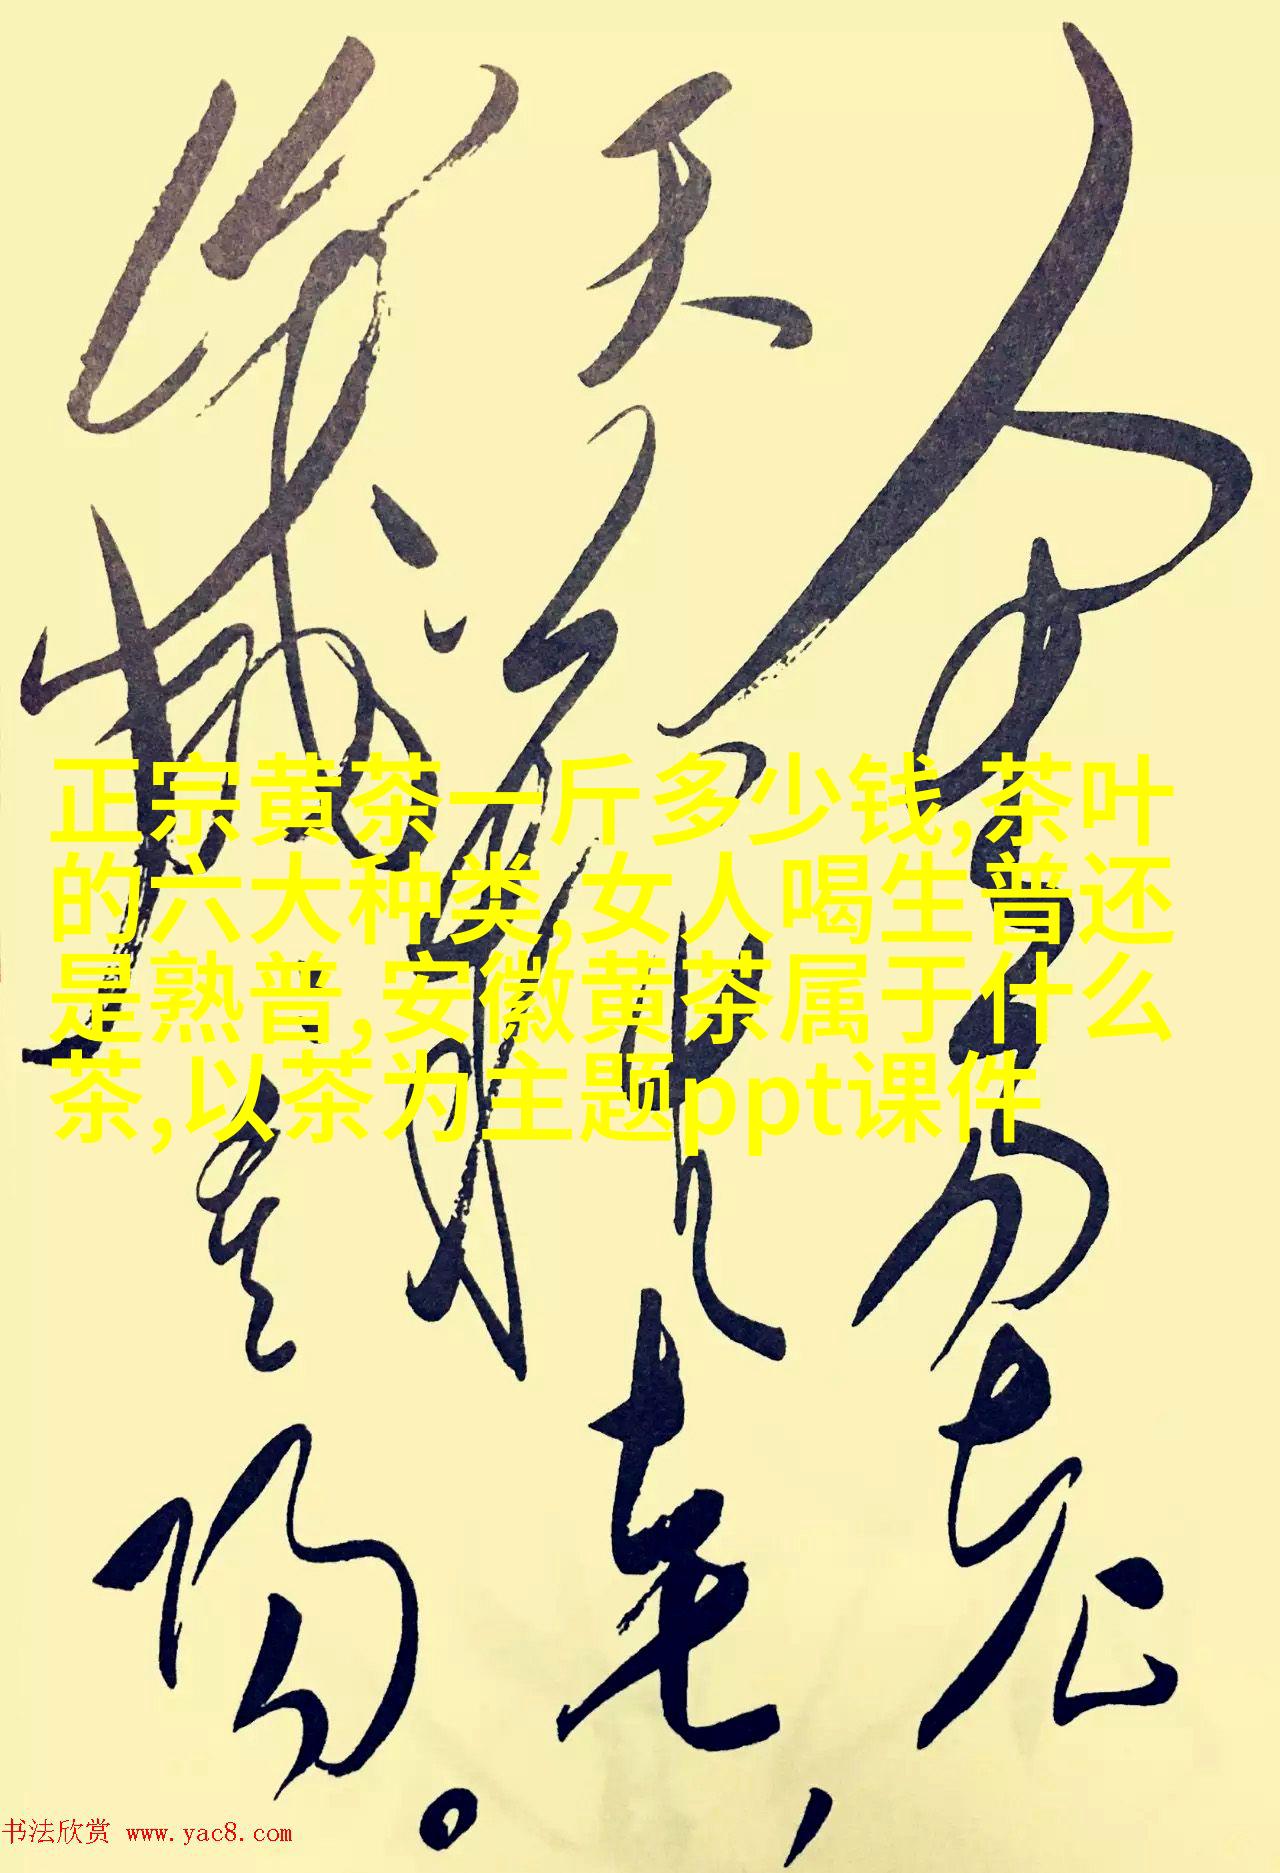 人生易老
天難老，
歲歲重陽。
正宗黄茶一斤多少钱,茶叶
的六大种类,女人喝生普还
是熟普,安徽黄茶属于什么
茶,以茶为主题ppt课件
书法欣赏 www.yac8.com